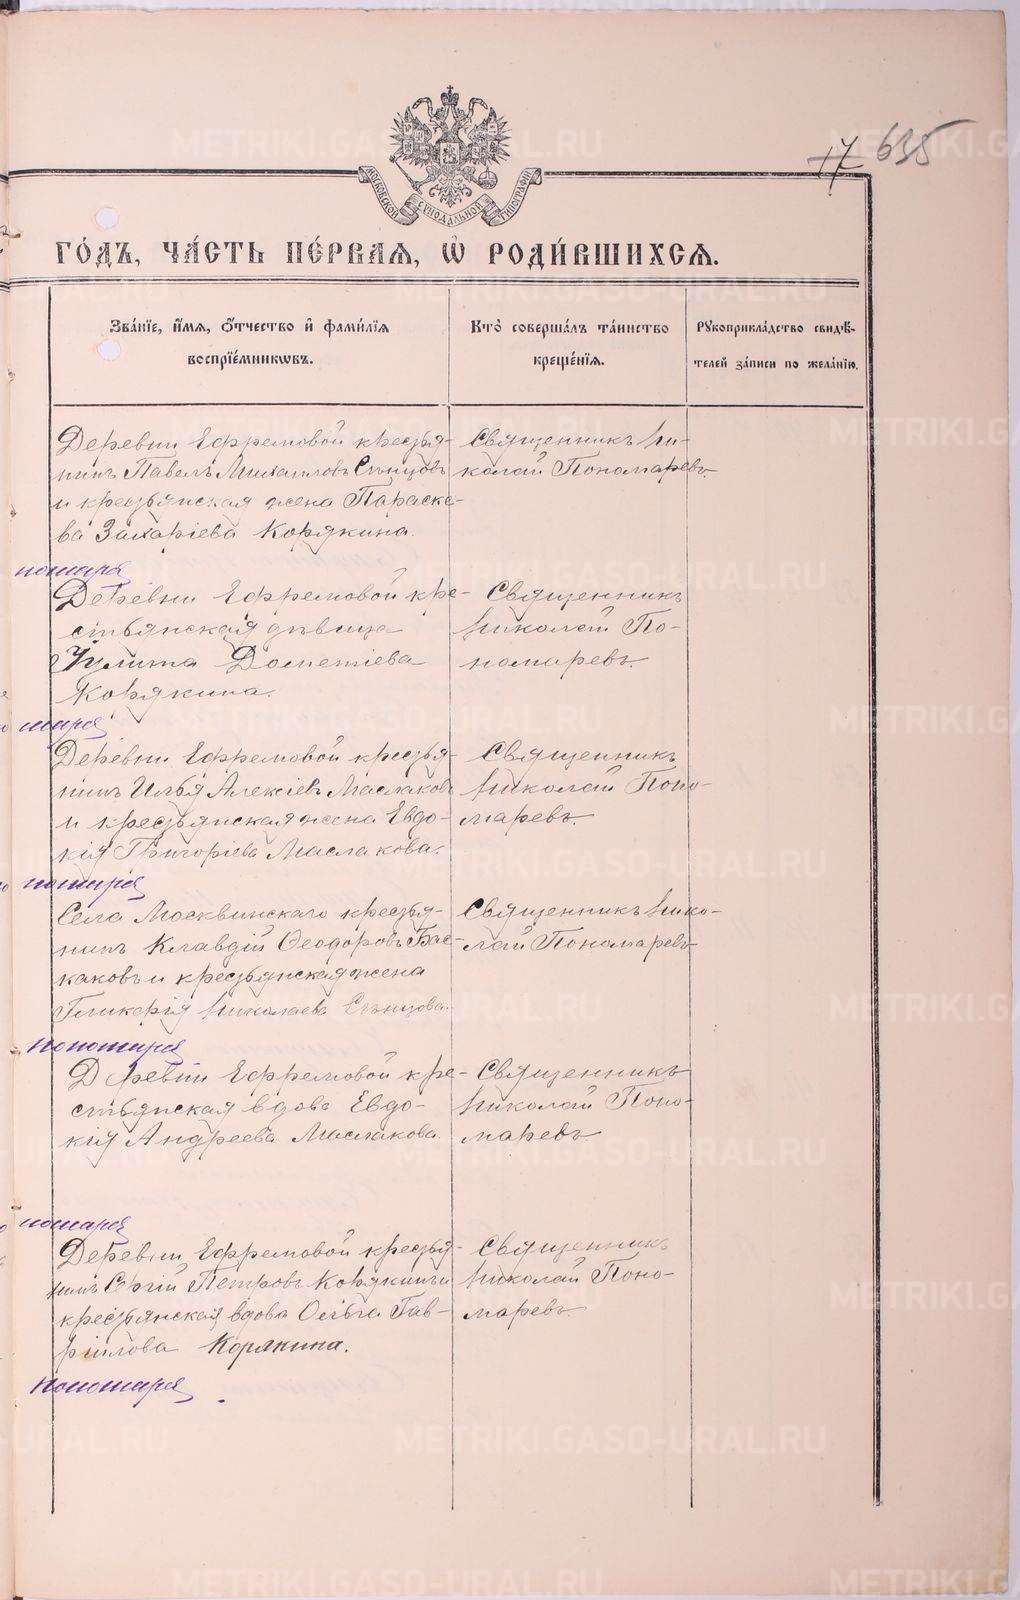 17 635
МОСКОВСКОЙ СУНОДАЛЬНОЙ ТИПОГРАФІИ
ГО́ДЪ, ЧА́СТЬ ПЕ́РВАЯ, Ѡ҆ РОДИ́ВШИХСЯ.
Зва́нїе, и҆́мя, ѻ҆́тчество и҆ фами́лїя
воспрїе́мникѡвъ.
Кто̀ соверша́лъ та́инство
креще́нїя.
Рꙋкоприкла́дство свидѣ́-
телей за́писи по жела́нїю.
Деревни Ефремовой крестья-
нинъ Павелъ Михаиловъ Сѣнцовъ
и крестьянская жена Параске-
ва Захаріева Корякина.
Священникъ Ни-
колай Пономаревъ.
пономаря
Деревни Ефремовой кре-
стьянская дѣвица
Іулита Дометіева
Корякина.
Священникъ
Николай По-
номаревъ.
Деревни Ефремовой крестья-
нинъ Илья Алексіевъ Маслаковъ
и крестьянская жена Евдо-
кія Григоріева Маслакова.
Священникъ
Николай Поно-
маревъ.
Села Москвинскаго крестья-
нинъ Клавдій Ѳеодоровъ Бас-
каковъ и крестьянская жена
Гликерія Николаева Сѣнцова.
Священникъ Нико-
лай Пономаревъ
Деревни Ефремовой кре-
стьянская вдова Евдо-
кія Андреева Маслакова.
Священникъ
Николай Поно-
маревъ.
Деревни Ефремовой крестья-
нинъ Сергій Петровъ Корякинъ и
крестьянская вдова Ольга Гав-
риилова Корякина.
Священникъ
Николай Поно-
маревъ.
METRIKI.GASO-URAL.RU